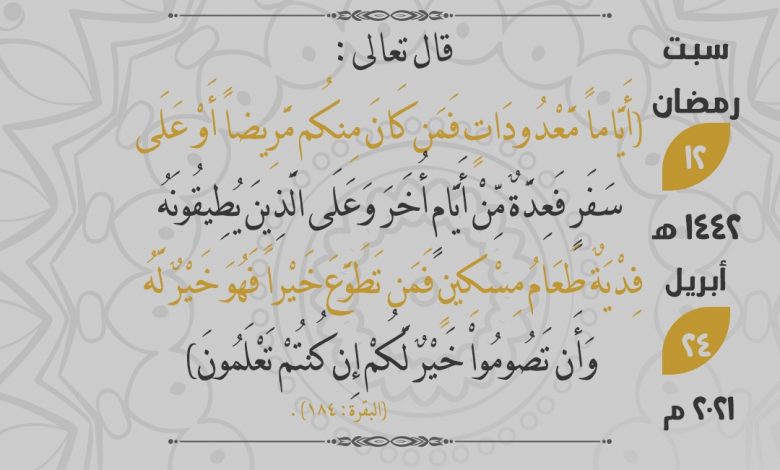 سبت
رمضان
١٢
١٤٤٢ هـ
أبريل
٢٤
٢٠٢١ م
قال تعالى :
(أَيَّاماً مَّعْدُودَاتٍ فَمَن كَانَ مِنكُم مَّرِيضاً أَوْ عَلَى
سَفَرٍ فَعِدَّةٌ مِّنْ أَيَّامٍ أُخَرَ وَعَلَى الَّذِينَ يُطِيقُونَهُ
فِدْيَةٌ طَعَامُ مِسْكِينٍ فَمَن تَطَوَّعَ خَيْراً فَهُوَ خَيْرٌ لَّهُ
وَأَن تَصُومُواْ خَيْرٌ لَّكُمْ إِن كُنتُمْ تَعْلَمُونَ)
(البقرة : ١٨٤) .